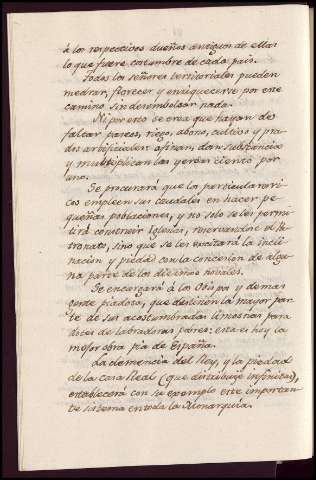 á los respectivos dueños antiguos de ellas
lo que fuere costumbre de cada pais.
Todos los señores territoriales pueden
medrar, florecer y enriquecerse por este
camino sin desembolsar nada.
Ni por esto se crea que hayan de
faltar pastos, riego, abono, cultivo y pra-
dos artificiales afinan, dan substancia
y multiplican las yervas ciento por
uno.
Se procurará que los particulares ri-
cos empleen sus caudales en hacer pe-
queñas poblaciones, y no solo se les permi-
tirá construir Iglesias, reservandose el Pa-
tronato, sino que se les excitará la incli-
nacion y piedad con la concesion de algu-
na parte de los diezmos novales.
Se encargará á los Obispos y demas
gente piadosa, que destinen la mayor par-
te de sus acostumbradas limosnas para
dotes de labradoras pobres: esta es hoy la
mejor obra pia de España.
La clemencia del Rey, y la piedad
de la Casa Real (que distribuye infinitas),
establecerá con su exemplo este importan-
te sistema en toda la Monarquía.